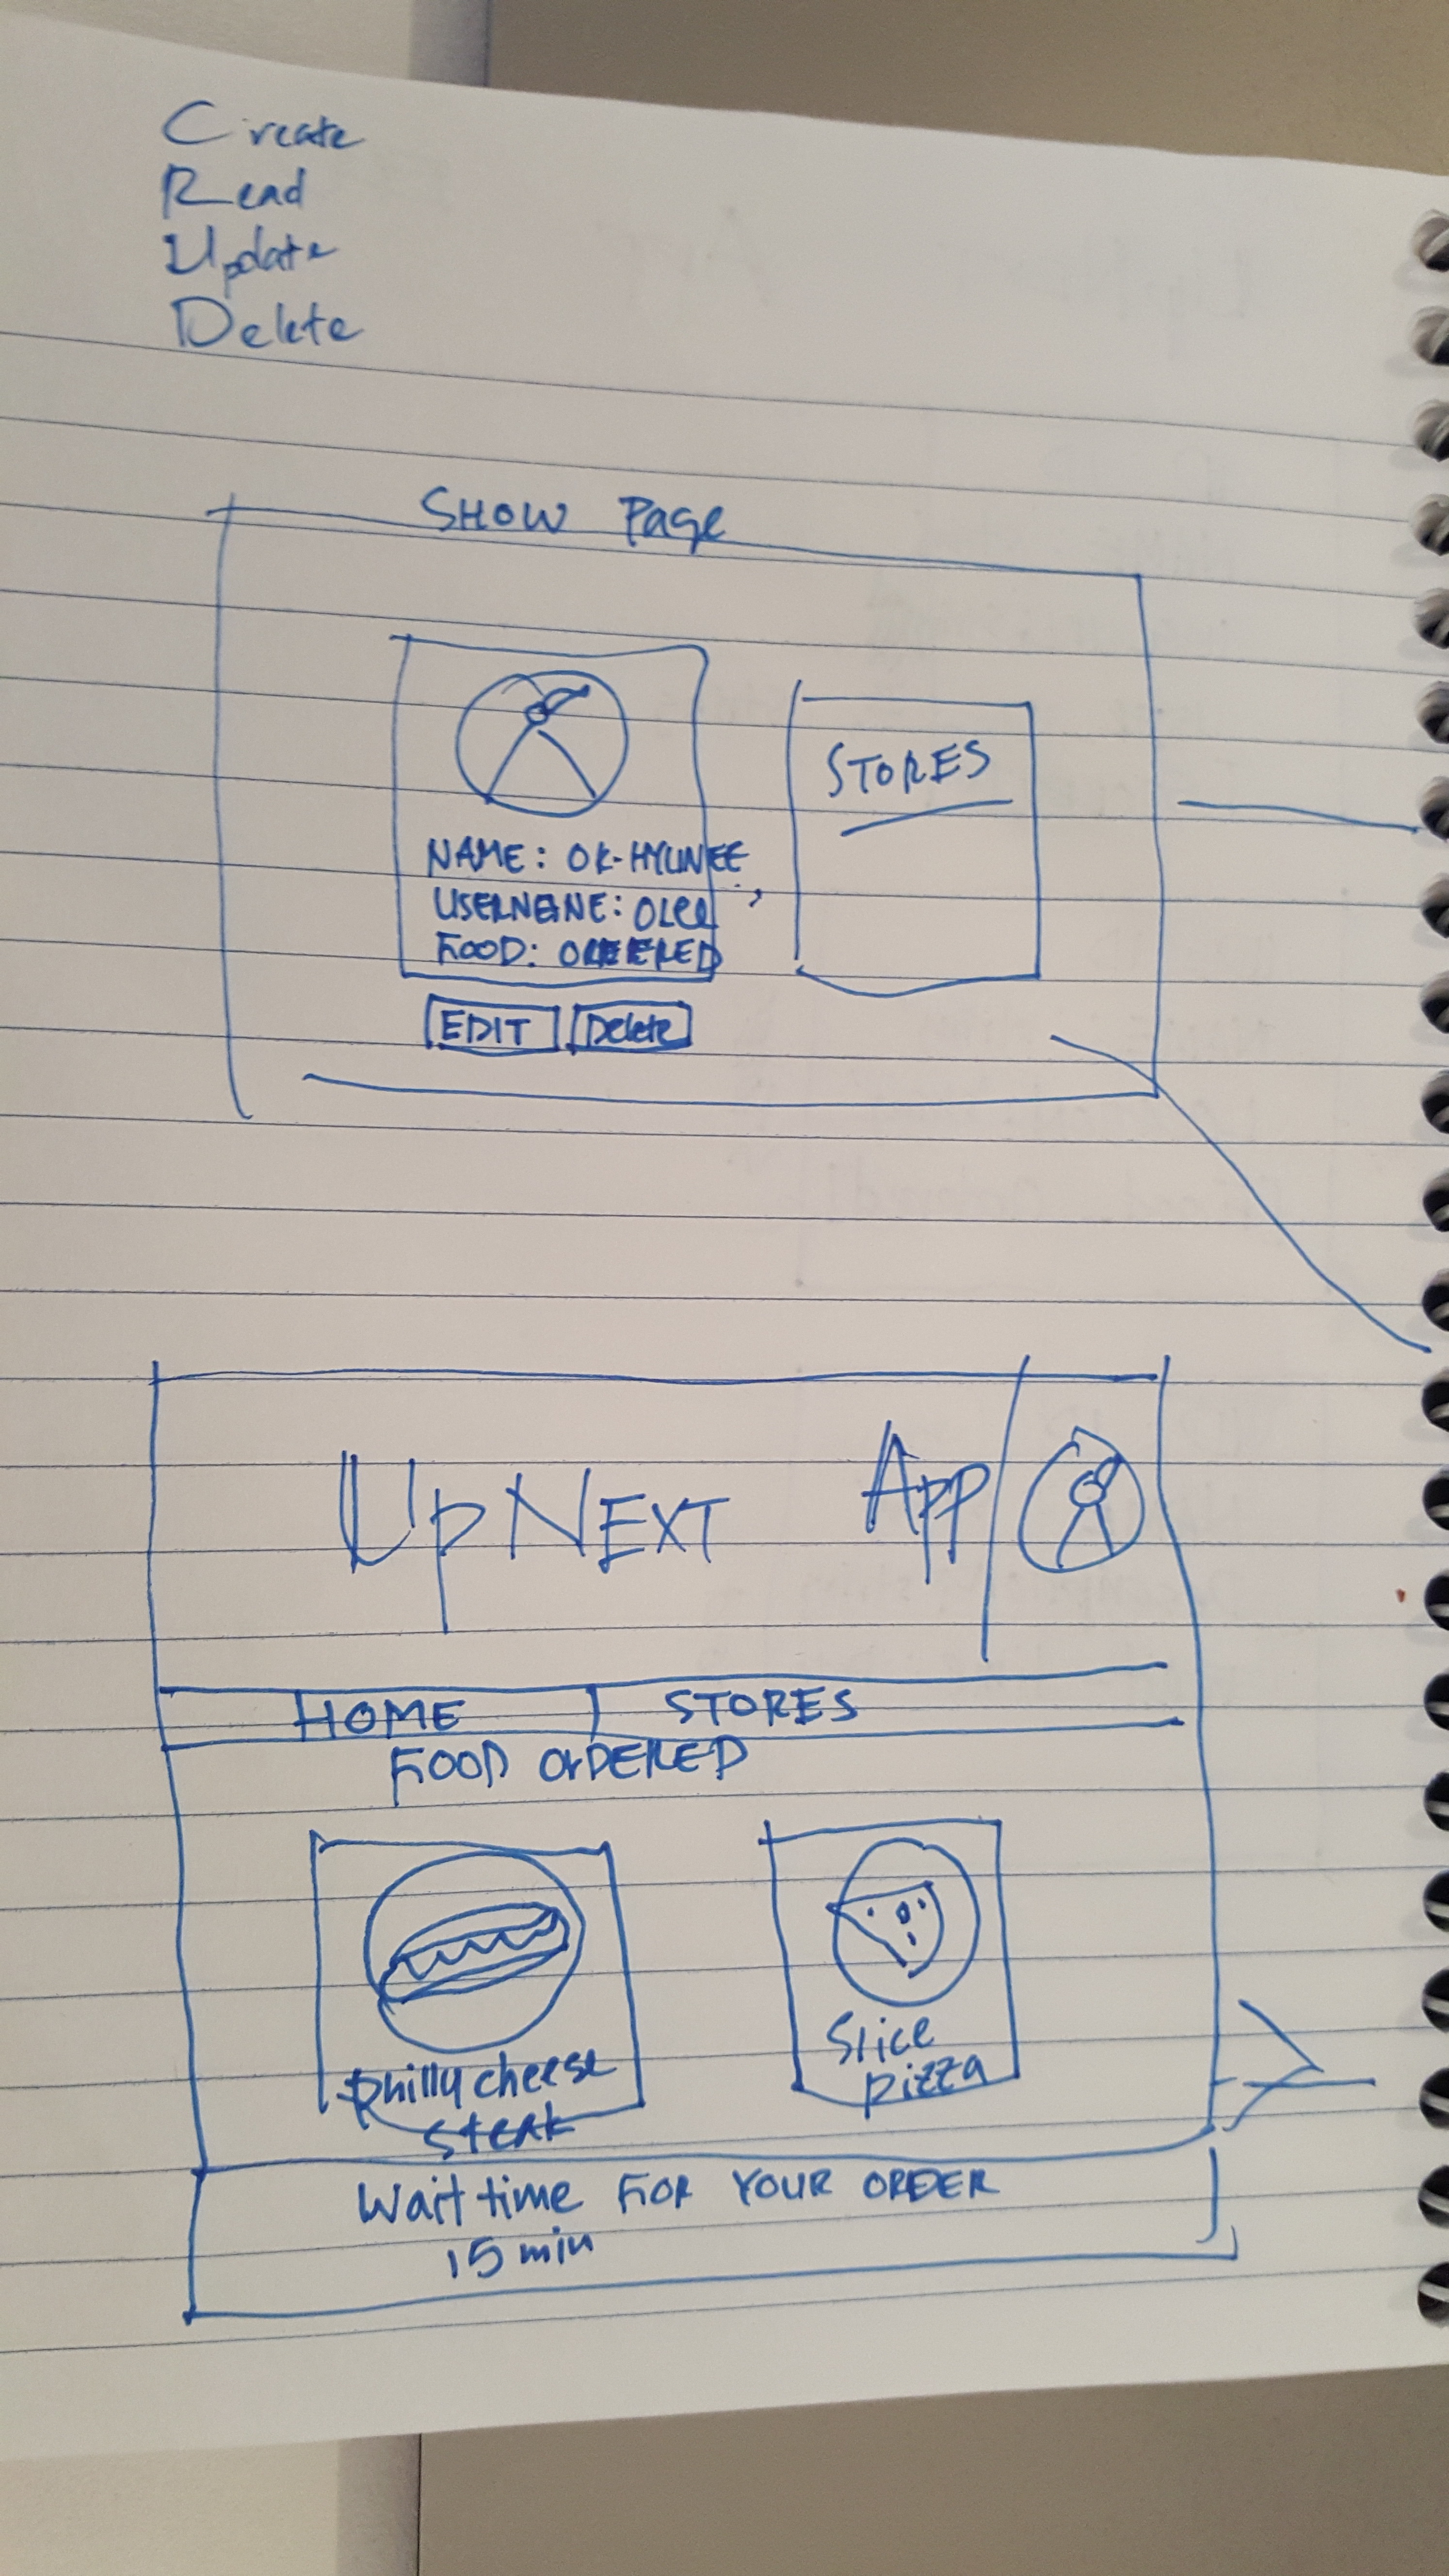 Create
Read
Update
Delete
SHOW Page
STORES
NAME: OK-HYUNEE
FOOD: ORDERED
EDIT Delete
UpNEXT App
HOME STORES
FOOD OrDERED
Philly cheese
steak
Slice
pizza
Wait time FOR YOUR ORDER
15 min